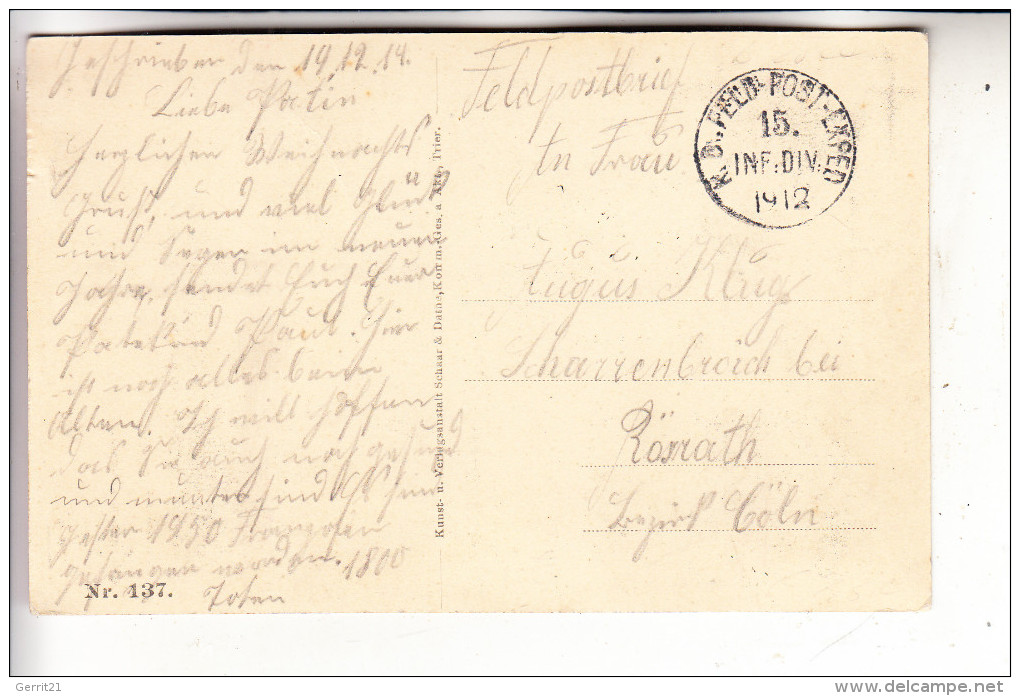 Geschrieben den 19.12.14.
Liebe Patin
Herzlichen Weihnachts
Gruß, und viel Glück
und Segen im neuen
Jahre, sendet Euch Euer
Patekind Paul. Hier
ist noch alles beim
Alten. Ich will hoffen
das Sie auch noch gesund
und munter sind. Es sind
Gester 1950 Franzosen
gefangen worden, 1800
Toten
Nr. 137.
Kunst- u. Verlagsanstalt Schaar & Dathe, Komm.-Ges. a. Akt., Trier.
Feldpostbrief
K. D. FELD-POST-EXPED
15.
INF.DIV.
1912
An Frau
Klug
Scharrenbroich bei
Rösrath
Bezirk Cöln
Gerrit21
delcampe.net